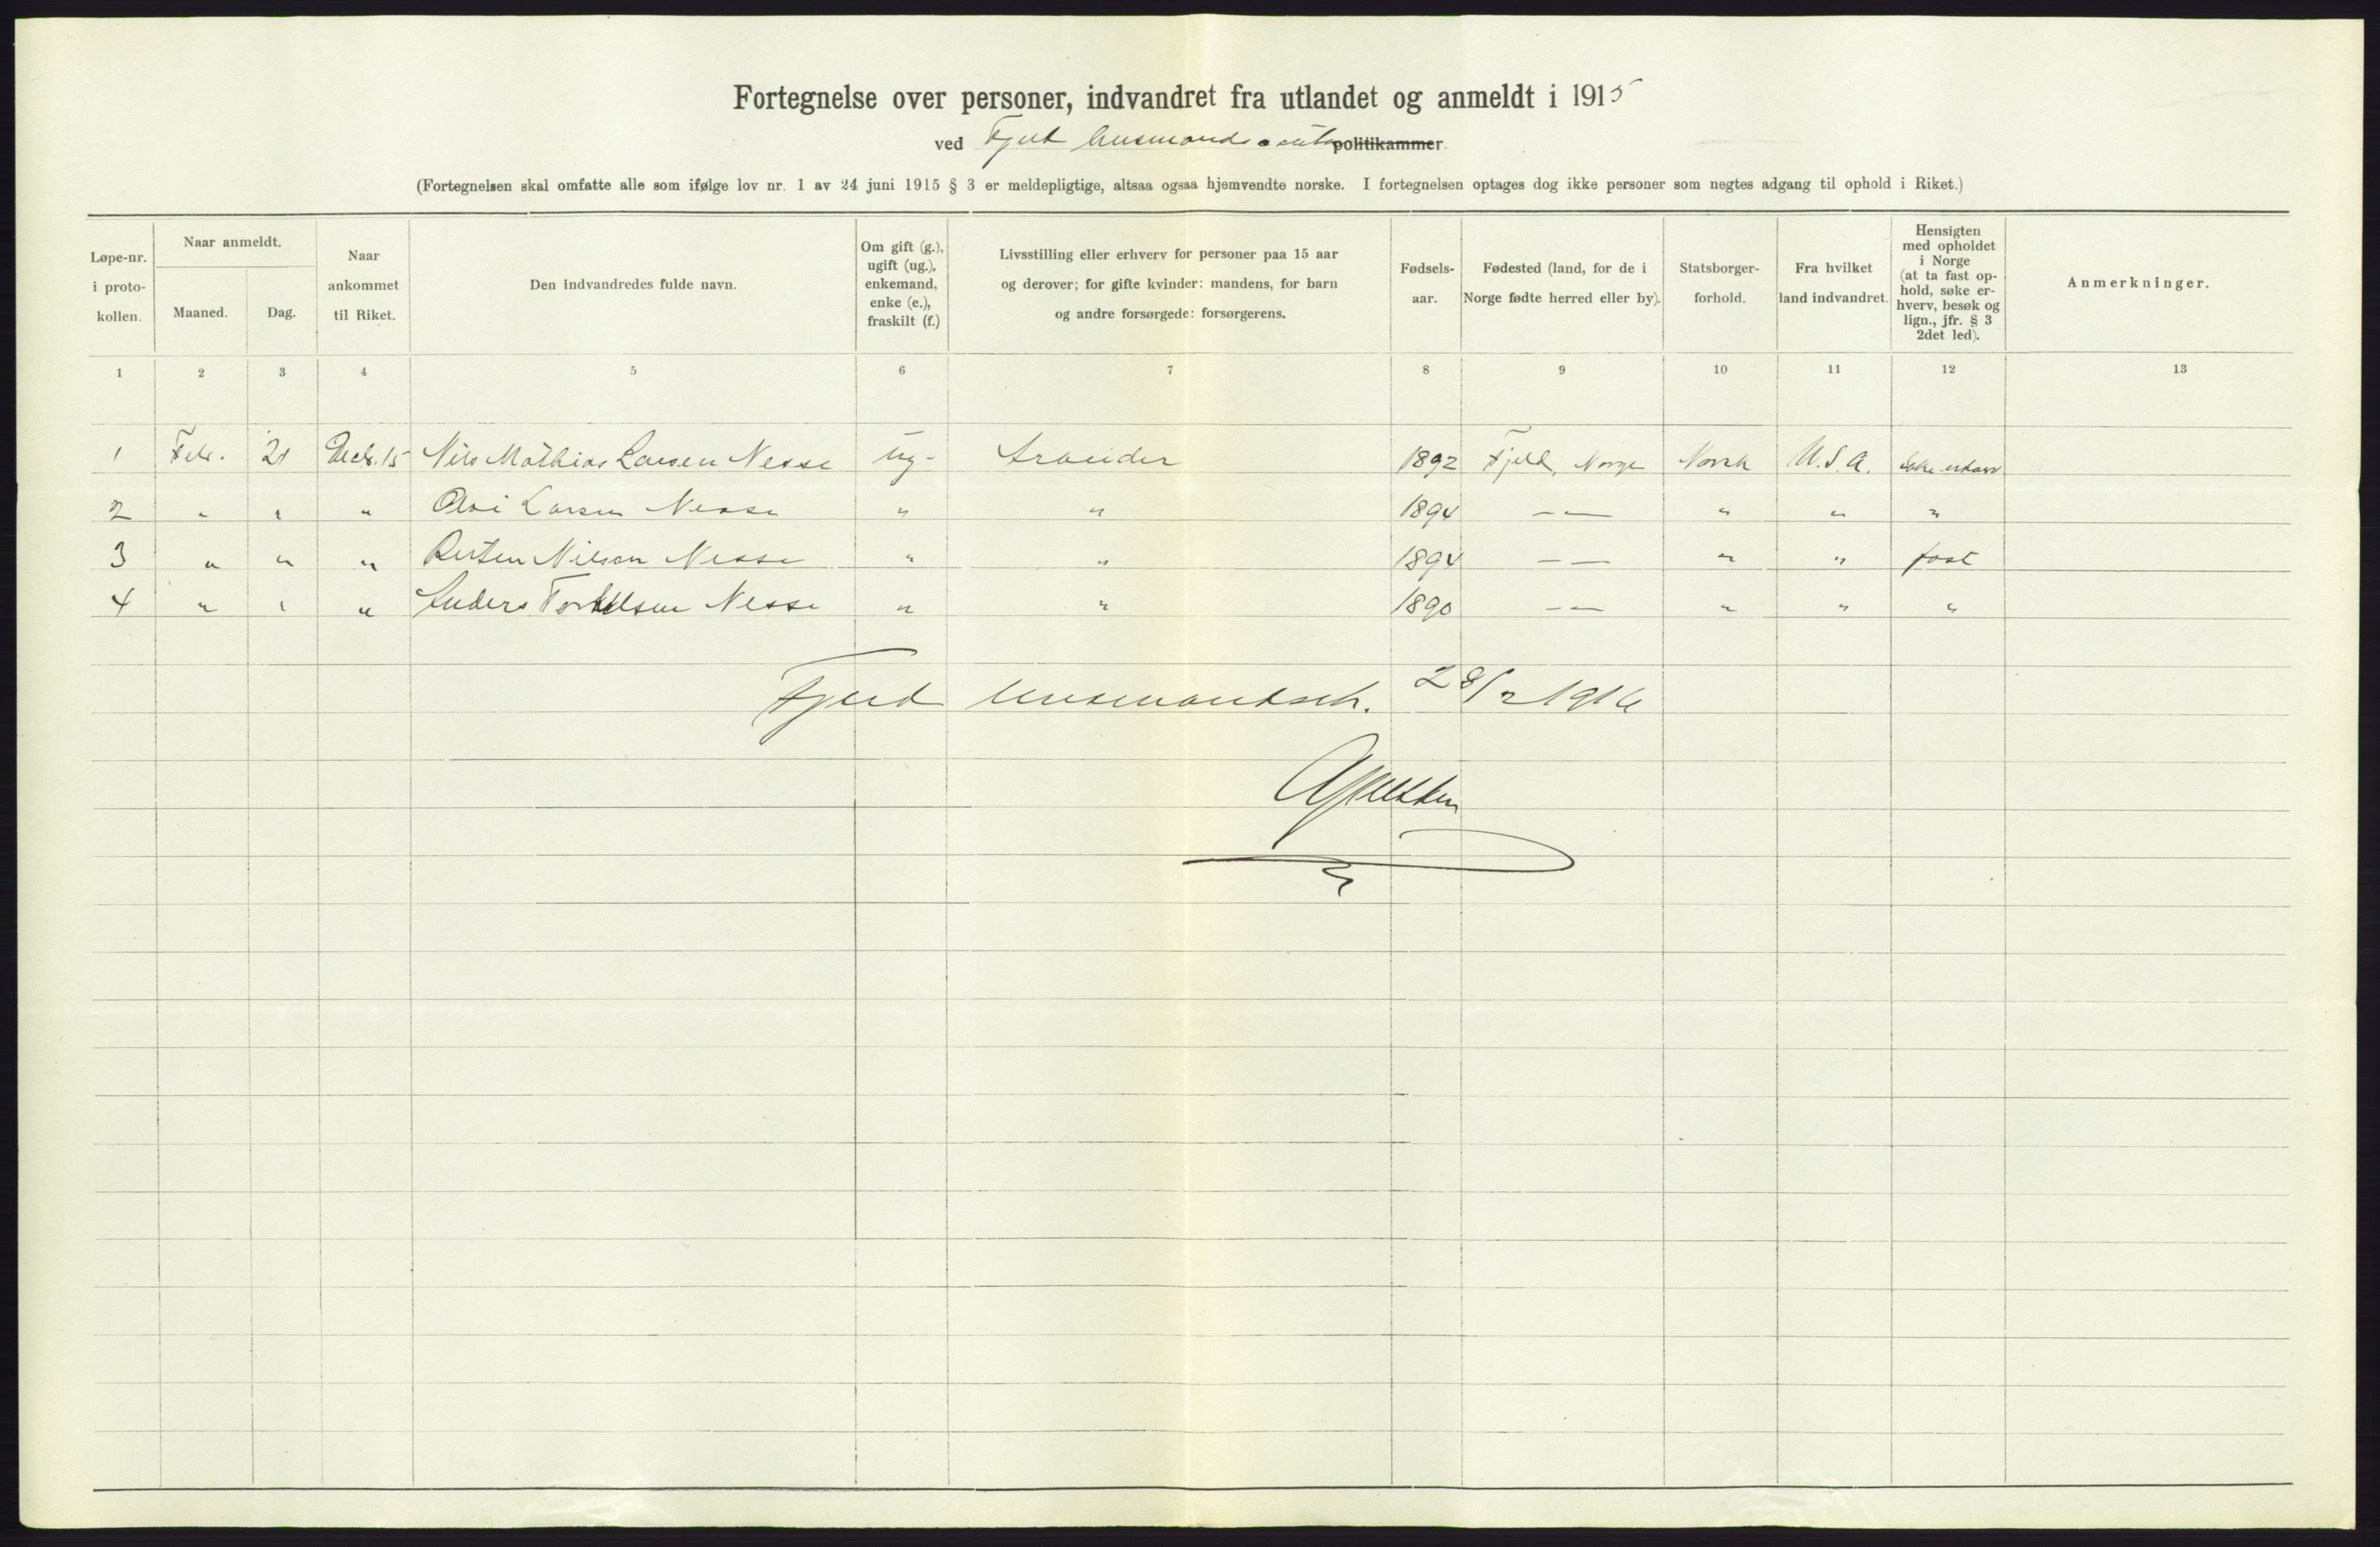 Fortegnelse over personer, indvandret fra utlandet og anmeldt i 1915
ved Fjeld lensmands politikammer.
(Fortegnelsen skal omfatte alle som ifølge lov nr. 1 av 24 juni 1915 § 3 er meldepligtige, altsaa ogsaa hjemvendte norske. I fortegnelsen optages dog ikke personer som negtes adgang til ophold i Riket.)
Løpe-nr. i proto-kollen.
Naar anmeldt.
Maaned.
Dag.
Naar ankommet til Riket.
Den indvandredes fulde navn.
Om gift (g.), ugift (ug.), enkemand, enke (e.), fraskilt (f.)
Livsstilling eller erhverv for personer paa 15 aar og derover; for gifte kvinder: mandens, for barn og andre forsørgede: forsørgerens.
Fødsels-aar.
Fødested (land, for de i Norge fødte herred eller by).
Statsborger-forhold.
Fra hvilket land indvandret.
Hensigten med opholdet i Norge (at ta fast op-hold, søke er-hverv, besøk og lign., jfr. § 3 2det led).
Anmerkninger.
1 2 3 4 5 6 7 8 9 10 11 12 13
1 Febr. 21 Decbr. 15 Nils Mathias Larsen Nesse ug- Arbeider 1892 Fjeld, Norge Norsk U.S.A. Søke erhverv
2 " " " Larsen Nesse " " 1894 — — " " "
3 " " " Nilsen Nesse " " 1894 — — " " fast
4 " " " Anders Torkelsen Nesse " " 1890 — — " " "
Fjeld lensmandsk. 28/2 1916